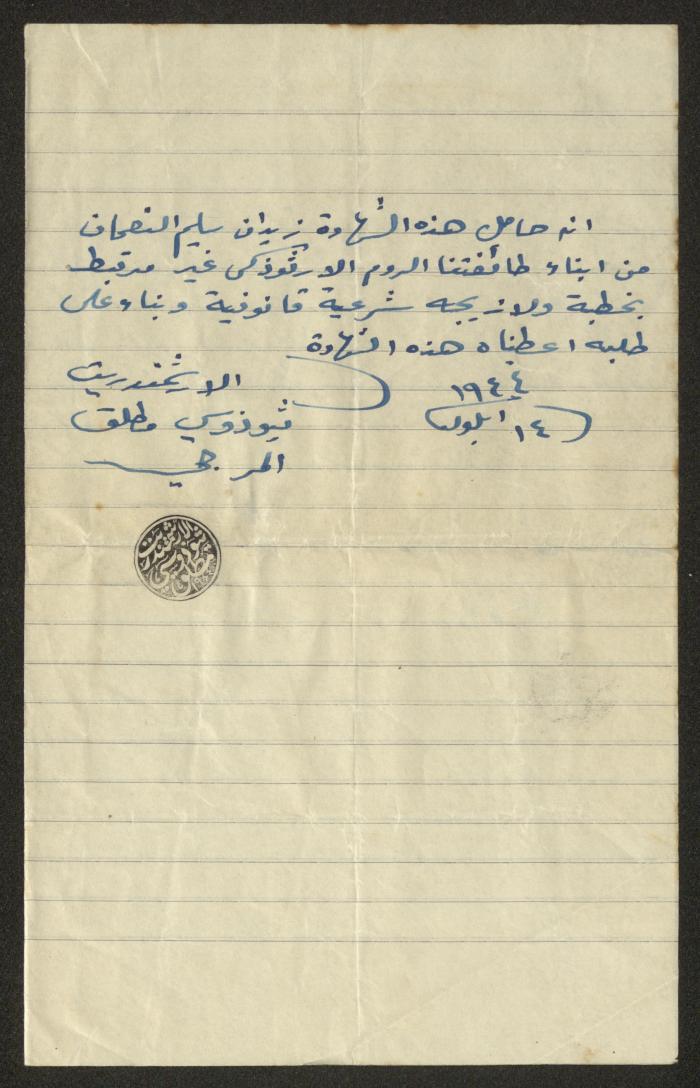 انه حامل هذه الشهادة زيدان سليم النعمان
من ابناء طائفتنا الروم الارثوذكس غير مرتبط
بخطبة ولا زيجه شرعية قانونية وبناء على
طلبه اعطيناه هذه الشهادة
١٤ ايلول ١٩٤٤
الارشمندريت
ثيوذوسي مطلق